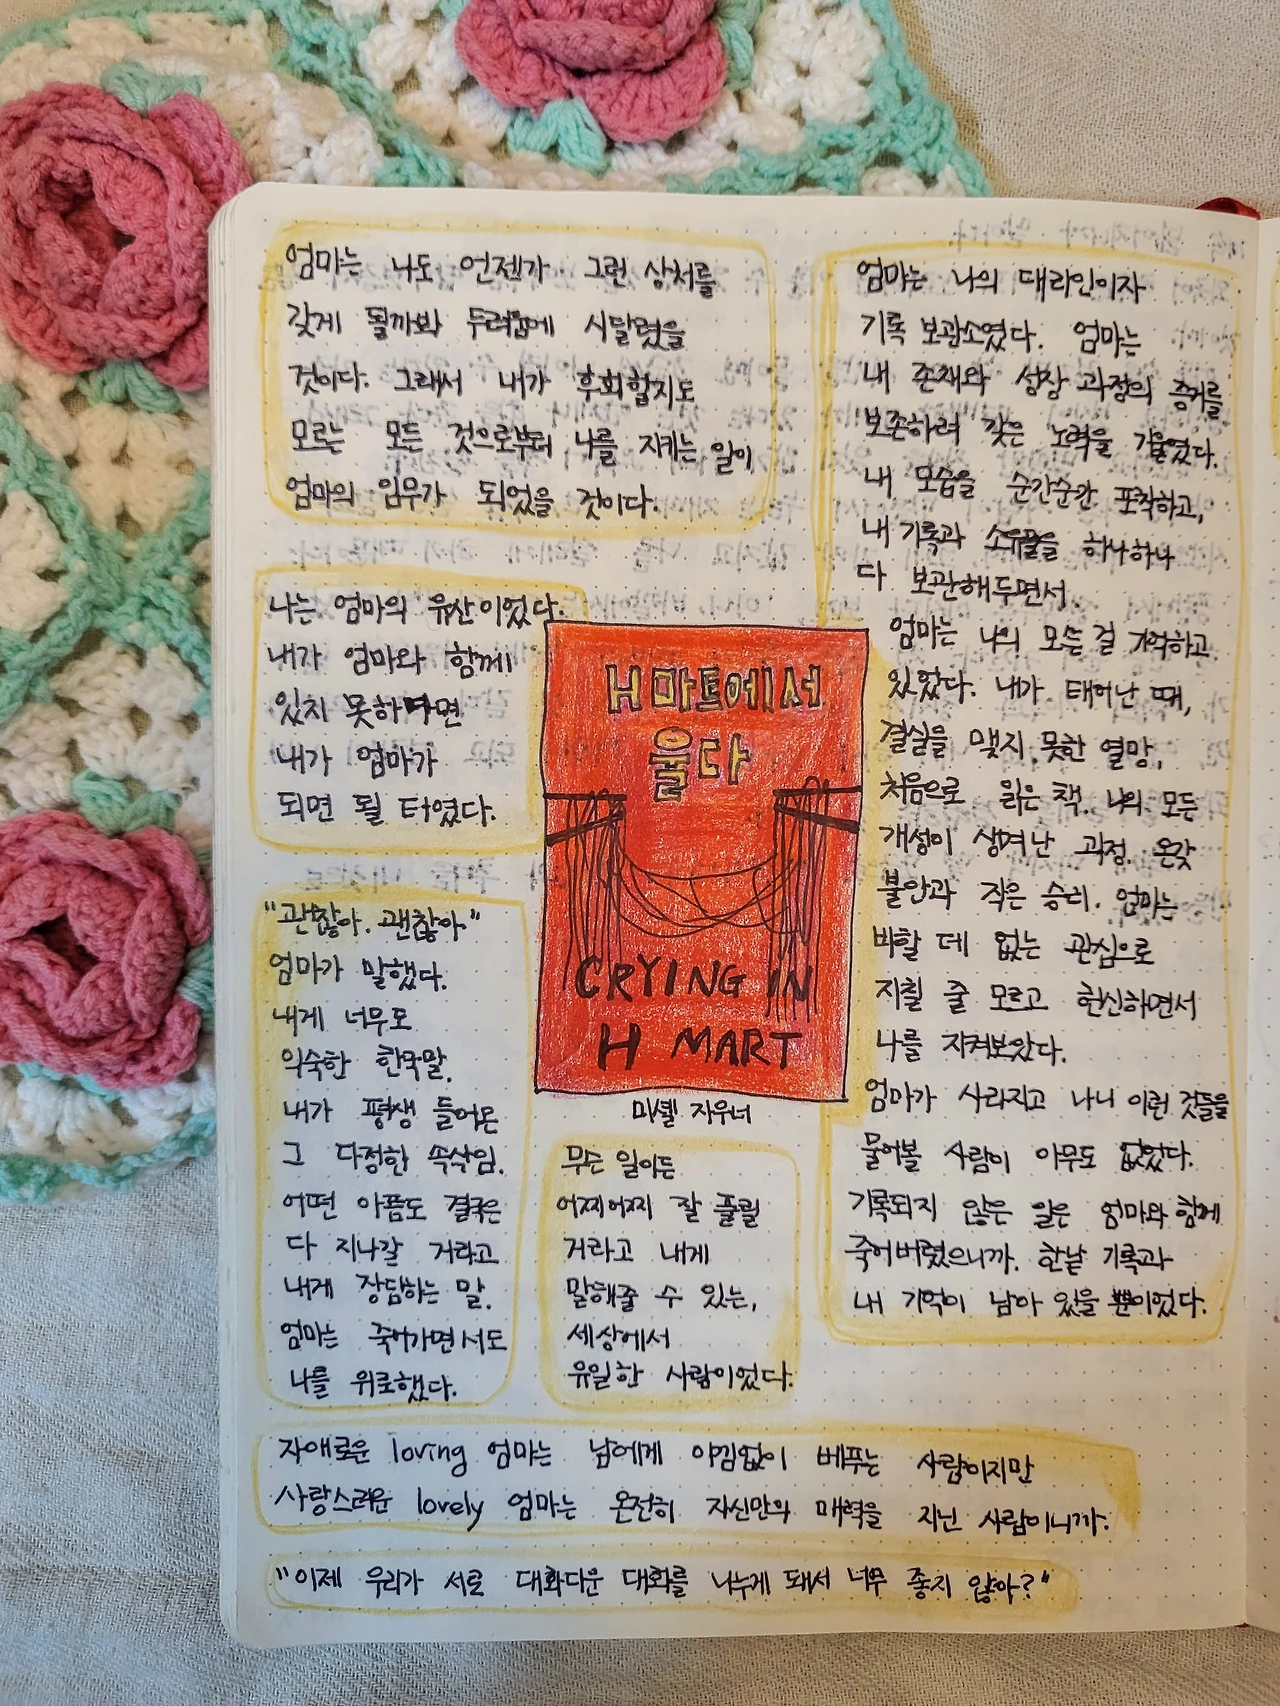 엄마는 나도 언젠가 그런 상처를
갖게 될까봐 두려움에 시달렸을
것이다. 그래서 내가 후회할지도
모르는 모든 것으로부터 나를 지키는 일이
엄마의 임무가 되었을 것이다.
나는 엄마의 유산이었다.
내가 엄마와 함께
있지 못하다면
내가 엄마가
되면 될 터였다.
"괜찮아. 괜찮아"
엄마가 말했다.
내게 너무도
익숙한 한국말.
내가 평생 들어온
그 다정한 속삭임.
어떤 아픔도 결국은
다 지나갈 거라고
내게 장담하는 말.
엄마는 죽어가면서도
나를 위로했다.
H마트에서
울다
CRYING IN
H MART
미셸 자우너
무슨 일이든
어찌어찌 잘 풀릴
거라고 내게
말해줄 수 있는,
세상에서
유일한 사람이었다.
엄마는 나의 대리인이자
기록 보관소였다. 엄마는
내 존재와 성장 과정의 증거를
보존하려 갖은 노력을 기울였다.
내 모습을 순간순간 포착하고,
내 기록과 소유물을 하나하나
다 보관해두면서.
엄마는 나의 모든 걸 기억하고
있었다. 내가 태어난 때,
결실을 맺지 못한 열망,
처음으로 읽은 책. 나의 모든
개성이 생겨난 과정. 온갖
불안과 작은 승리. 엄마는
비할 데 없는 관심으로
지칠 줄 모르고 헌신하면서
나를 지켜보았다.
엄마가 사라지고 나니 이런 것들을
물어볼 사람이 아무도 없었다.
기록되지 않은 일은 엄마와 함께
죽어버렸으니까. 한낱 기록과
내 기억이 남아 있을 뿐이었다.
자애로운 loving 엄마는 남에게 아낌없이 베푸는 사람이지만
사랑스러운 lovely 엄마는 온전히 자신만의 매력을 지닌 사람이니까.
"이제 우리가 서로 대화다운 대화를 나누게 돼서 너무 좋지 않아?"